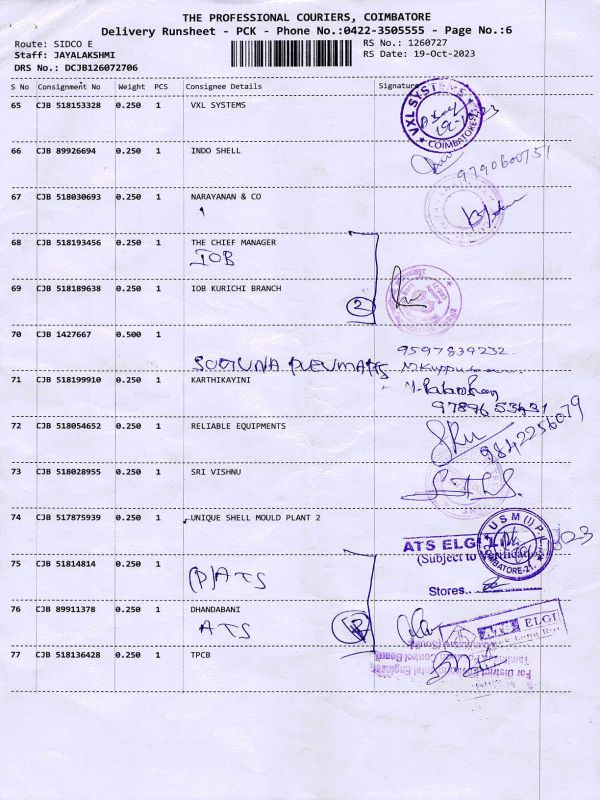 THE PROFESSIONAL COURIERS, COIMBATORE
Delivery Runsheet - PCK - Phone No.:0422-3505555 - Page No.:6
Route: SIDCO E
RS No.: 1260727
Staff: JAYALAKSHMI
RS Date: 19-Oct-2023
DRS No.: DCJB126072706
S No Consignment No Weight PCS Consignee Details Signature
65 CJB 518153328 0.250 1 VXL SYSTEMS
VXL SYSTEMS
COIMBATORE
66 CJB 89926694 0.250 1 INDO SHELL
9790600751
67 CJB 518030693 0.250 1 NARAYANAN & CO
68 CJB 518193456 0.250 1 THE CHIEF MANAGER
IOB
69 CJB 518189638 0.250 1 IOB KURICHI BRANCH
2
70 CJB 1427667 0.500 1
9597839232
71 CJB 518199910 0.250 1 KARTHIKAYINI
9789653431
72 CJB 518054652 0.250 1 RELIABLE EQUIPMENTS
9842256079
73 CJB 518028955 0.250 1 SRI VISHNU
74 CJB 517875939 0.250 1 UNIQUE SHELL MOULD PLANT 2
USM (I) P.L
COIMBATORE-21.
ATS ELGI
(Subject to Verification)
Stores..
75 CJB 51814814 0.250 1
(P) ATS
76 CJB 89911378 0.250 1 DHANDABANI
ATS
ATS ELGI
77 CJB 518136428 0.250 1 TPCB
For District Environmental Engineer
Control Board